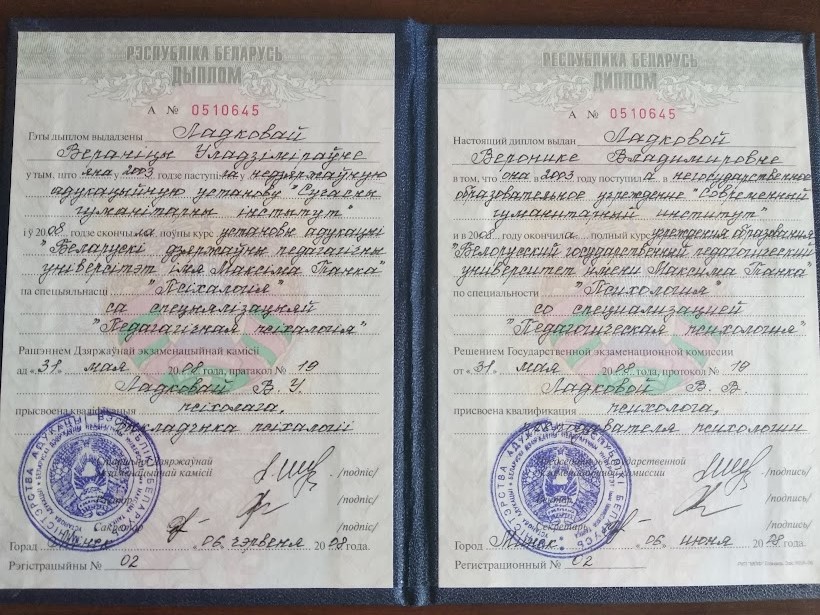 РЭСПУБЛІКА БЕЛАРУСЬ
ДЫПЛОМ
А № 0510645
Гэты дыплом выдадзены Ладковай
Вераніцы Уладзіміраўне
у тым, што яна 2003 годзе паступіла недзяржаўную
адукацыйную установу "Сучасны
гуманітарны інстытут"
і ў 2008 годзе скончыла поўны курс установы адукацыі
"Беларускі дзяржаўны педагагічны
універсітэт імя Максіма Танка"
па спецыяльнасці "Псіхалогія"
са спецыялізацыяй
"Педагагічная псіхалогія"
Рашэннем Дзяржаўнай экзаменацыйнай камісіі
ад «31» мая 2008 года, пратакол № 19
Ладковай В. У.
прысвоена кваліфікацыя псіхолага,
выкладчыка псіхалогіі
Старшыня Дзяржаўнай
экзаменацыйнай камісіі /подпіс/
Рэктар /подпіс/
Сакратар /подпіс/
Горад Мінск «06» чэрвеня 2008 года.
Рэгістрацыйны № 02
РЕСПУБЛИКА БЕЛАРУСЬ
ДИПЛОМ
А № 0510645
Настоящий диплом выдан Ладковой
Веронике Владимировне
в том, что она в 2003 году поступила в негосударственное
образовательное учреждение "Современный
гуманитарный институт"
и в 2008 году окончила полный курс учреждения образования
"Белорусский государственный педагогический
университет имени Максима Танка"
по специальности "Психология"
со специализацией
"Педагогическая психология"
Решением Государственной экзаменационной комиссии
от «31» мая 2008 года, протокол № 19
Ладковой В. В.
присвоена квалификация психолога,
преподавателя психологии
Председатель Государственной
экзаменационной комиссии /подпись/
Ректор /подпись/
Секретарь /подпись/
Город Минск «06» июня 2008 года.
Регистрационный № 02